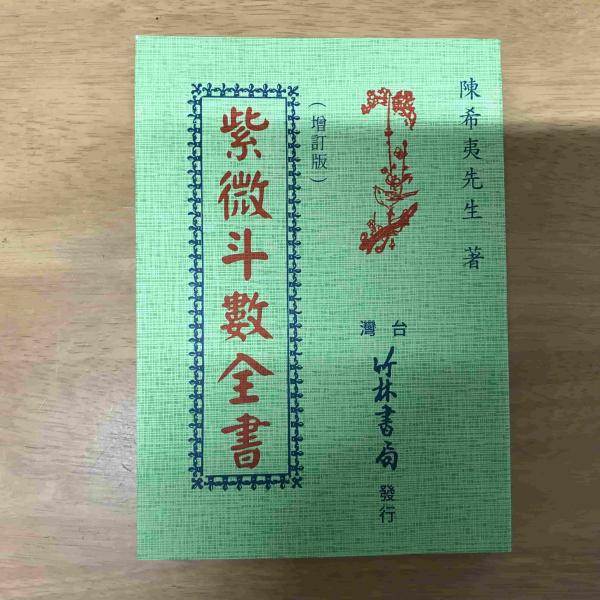 陳希夷先生 著
台灣
竹林書局
發行
（增訂版）
紫微斗數全書